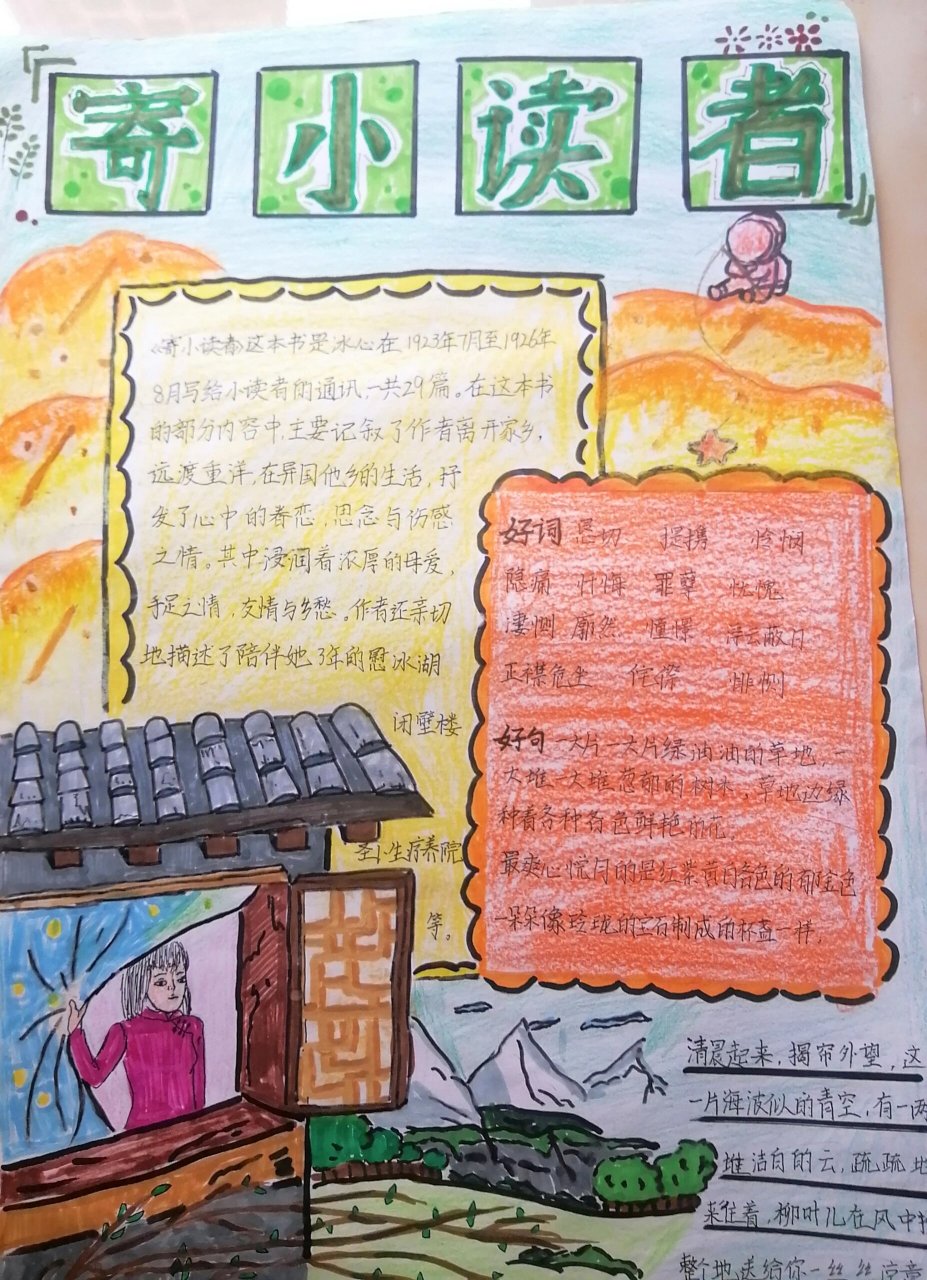 寄小读者
《寄小读者》这本书是冰心在1923年7月至1926年
8月写给小读者的通讯,一共29篇。在这本书
的部分内容中,主要记叙了作者离开家乡,
远渡重洋,在异国他乡的生活,抒
发了心中的眷恋,思念与伤感
之情。其中浸润着浓厚的母爱,
手足之情,友情与乡愁。作者还亲切
地描述了陪伴她3年的慰冰湖
闭璧楼
圣卜生疗养院
等。
好词 恳切 提携
隐痛 忏悔 罪孽
凄恻 廓然 憧憬 浮云蔽日
正襟危坐 侘傺 悱恻
好句 一大片一大片绿油油的草地,一
大堆一大堆葱郁的树木,草地边缘
种着各种各色鲜艳的花,
最爽心悦目的是红紫黄白各色的郁金色
一朵朵像玲珑的宝石制成的杯盏一样,
清晨起来,揭帘外望,这
一片海波似的青空,有一两
堆洁白的云,疏疏地
来往着,柳叶儿在风中
整个地送给你一丝丝凉意